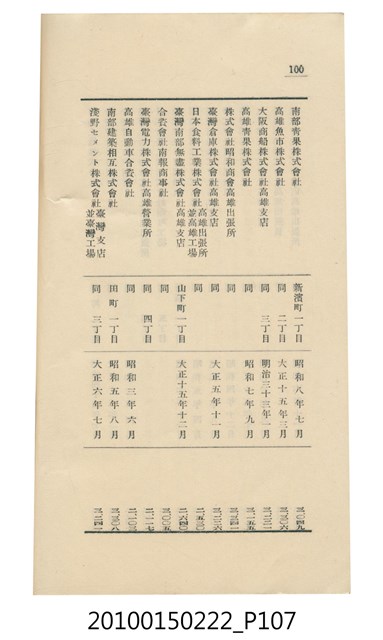 100
南部青果株式會社 新濱町一丁目 昭和八年七月
高雄魚市株式會社 同 二丁目 大正十五年三月
大阪商船株式會社高雄支店 同 三丁目 明治三十三年一月
高雄青果株式會社 同 昭和七年九月
株式會社昭和商會高雄出張所 同
臺灣倉庫株式會社高雄支店 同 大正五年十一月
日本食料工業株式會社高雄出張所並高雄工場 同
臺灣南部無盡株式會社高雄支店 山下町一丁目 大正十五年十二月
合資會社南報商事社 同
臺灣電力株式會社高雄營業所 同 四丁目
高雄自動車合資會社 同 昭和三年六月
南部建築相互株式會社 田町一丁目 昭和五年八月
淺野セメント株式會社臺灣支店並臺灣工場 同 大正六年七月
20100150222_P107